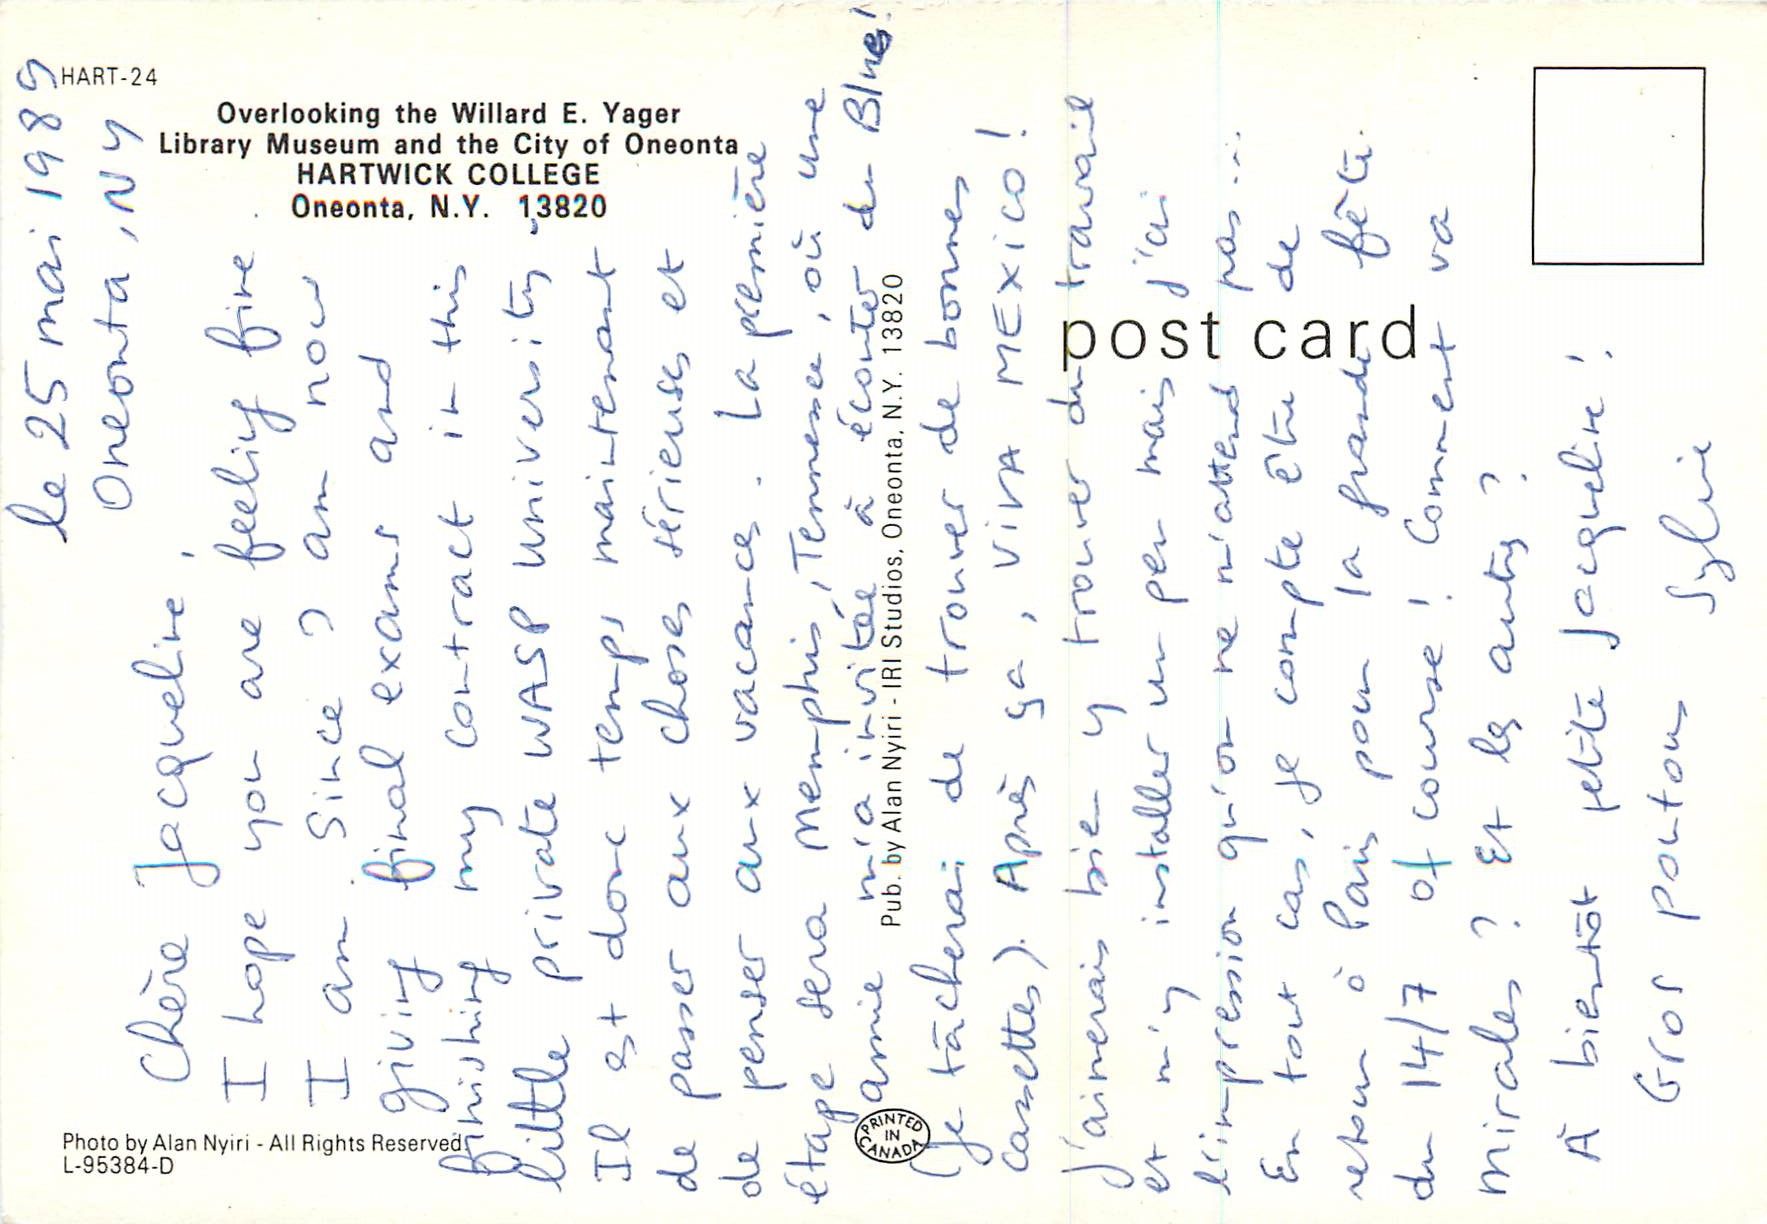 HART-24
Overlooking the Willard E. Yager
Library Museum and the City of Oneonta
HARTWICK COLLEGE
Oneonta, N.Y. 13820
post card
Photo by Alan Nyiri - All Rights Reserved
L-95384-D
Pub. by Alan Nyiri - IRI Studios, Oneonta, N.Y. 13820
PRINTED
IN
CANADA
le 25 mai 1989
Oneonta, NY
Chère Jacqueline,
I hope you are feeling fine
I am. Since I am now
giving final exams and
finishing my contract in this
little private WASP University.
Il est donc temps maintenant
de passer aux choses sérieuses et
de penser aux vacances. La première
étape sera Memphis, Tennessee, où une
amie m'a invitée à écouter du Blues!
(je tâcherai de trouver de bonnes
cassettes). Après ça, VIVA MEXICO!
J'aimerais bien y trouver du travail
et m'y installer un peu mais j'ai
l'impression qu'on ne m'attend pas...
En tout cas, je compte être de
retour à Paris pour la grande fête
du 14/7 of course! Comment va
Mirales? Et les autres?
À bientôt petite Jacqueline!
Gros poutous
Sylvie